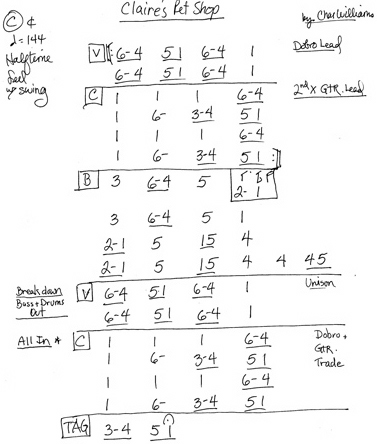 Claire's Pet Shop
by Char Williams
C ¢
♩=144
Halftime
feel
w/ swing
Dobro Lead
V 6-4 51 6-4 1
6-4 51 6-4 1
2nd X GTR. Lead
C 1 1 1 6-4
1 6- 3-4 51
1 1 1 6-4
1 6- 3-4 51 :
B 3 6-4 5 2- 1
3 6-4 5 1
2-1 5 15 4
2-1 5 15 4 4 45
Unison
Breakdown
Bass + Drums
Out
V 6-4 51 6-4 1
6-4 51 6-4 1
All In *
C 1 1 1 6-4
1 6- 3-4 51
1 1 1 6-4
1 6- 3-4 51
Dobro +
GTR.
Trade
TAG 3-4 51